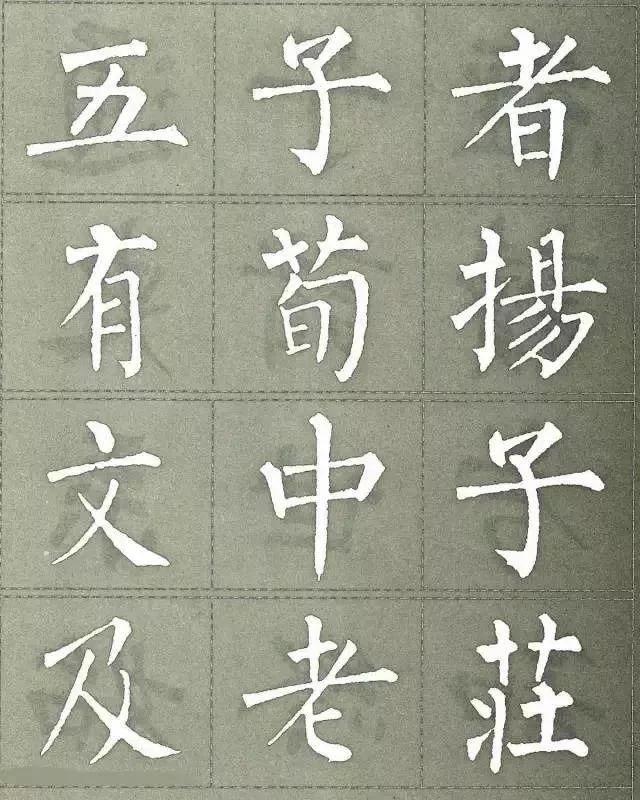 五子者
有荀揚
文中子
及老莊